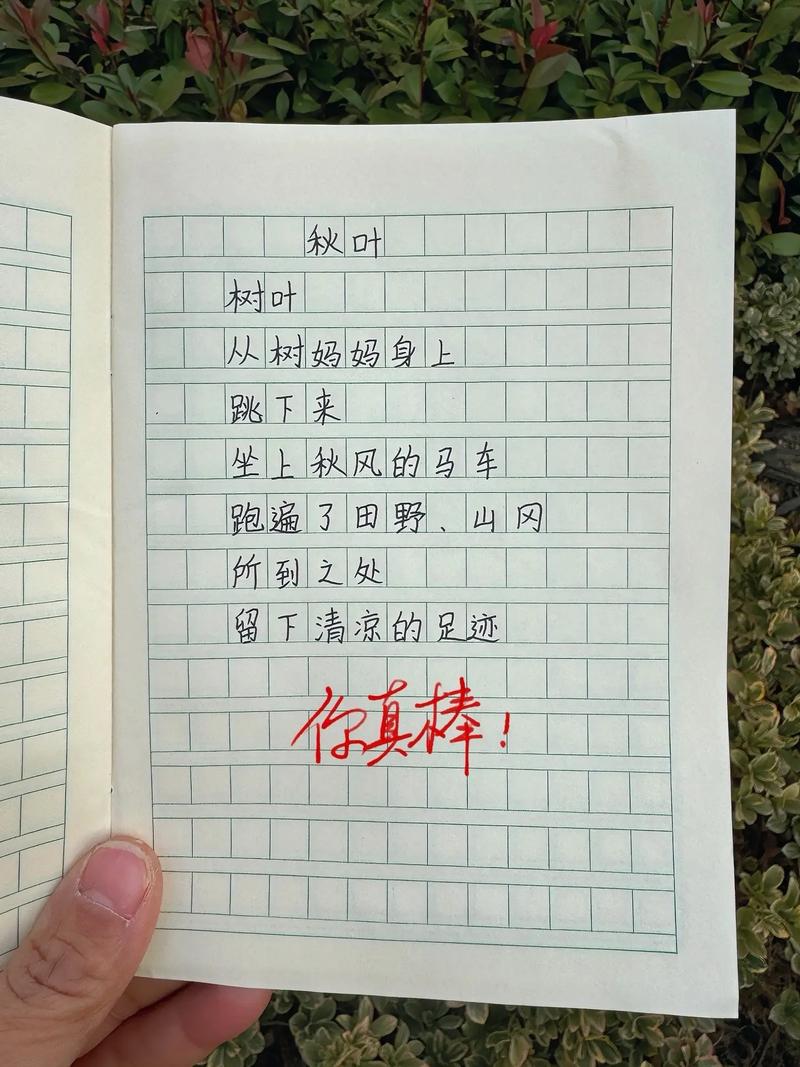 秋叶
树叶
从树妈妈身上
跳下来
坐上秋风的马车
跑遍了田野、山冈
所到之处
留下清凉的足迹
你真棒!